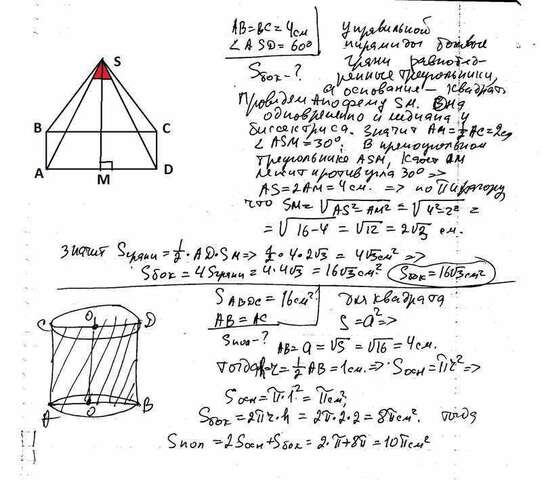 AB=BC=4см
∠ASD=60°
Sбок-?
S
B
C
A
M
D
У правильной
пирамиды боковые
грани равнобе-
ренные треугольники,
а основание – квадрат
Проведем апофему SM. Она
одновременно и медиана и
биссектриса. Значит AM=½AC=2см
∠ASM=30°. В прямоугольном
треугольнике ASM, катет AM
лежит против угла 30° =>
AS=2AM=4см. => по Пифагору
что SM=√AS²-AM² = √4²-2² =
=√16-4 = √12 = 2√3 см.
значит Sграни=½·AD·SM => ½·4·2√3 = 4√3см² =>
Sбок=4Sграни=4·4√3=16√3см² Sбок=16√3см²
SABDC=16см²
AB=AC
Sпол-?
для квадрата
S=a² =>
AB=a=√S=√16=4см.
тогда r=½AB=1см. => Sосн=πr² =>
Sосн=π·1²=πсм²,
Sбок=2πr·h=2π·2·2=8πсм². тогда
Sпол=2Sосн+Sбок=2·π+8π=10πсм²
C
O
D
A
O
B